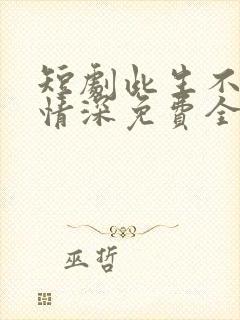 短劇此生不
情深免費全
巫哲